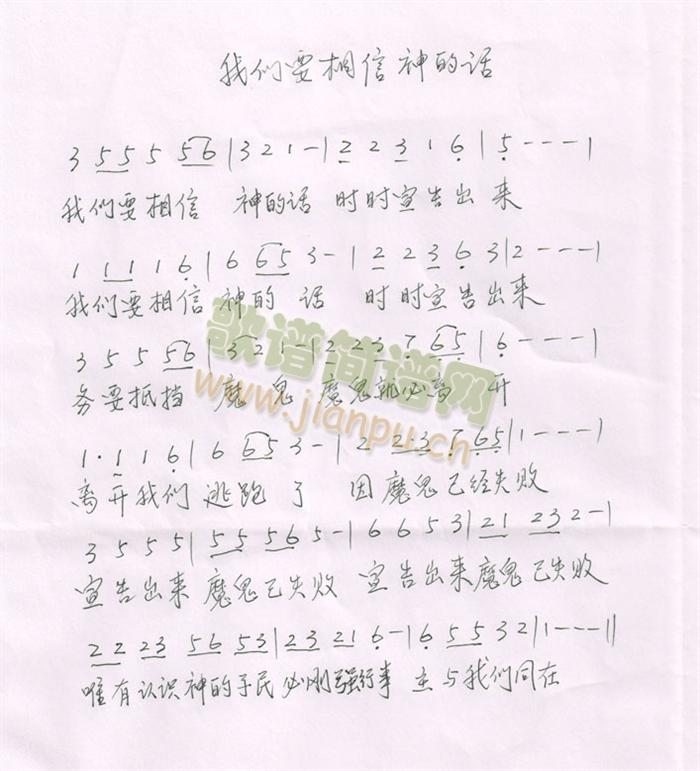 我们要相信神的话
3 5 5 5 5 6 | 3 2 1 - | 2 2 3 1 6 | 5 - - - |
我们要相信 神的话 时时宣告出 来
1 1 1 1 6 | 6 6 5 3 - | 2 2 3 6 3 | 2 - - - |
我们要相信神的 话 时时宣告出来
3 5 5 5 6 | 3 2 1 - | 2 2 3 7 6 5 | 6 - - - |
务要抵挡 魔 鬼 魔鬼就必离 开
歌谱简谱网
www.jianpu.cn
1 · 1 1 6 | 6 6 5 3 - | 2 2 · 3 7 6 5 | 1 - - - |
离开我们 逃跑 了 因魔鬼已经失败
3 5 5 5 | 5 5 5 6 5 - | 6 6 5 3 | 2 1 2 3 2 - |
宣告出来 魔鬼已失败 宣告出来魔鬼已失败
2 2 2 3 5 6 5 3 | 2 3 2 1 6 - | 6 5 5 3 2 | 1 - - - ||
唯有认识神的子民必刚强行事 主与我们同在